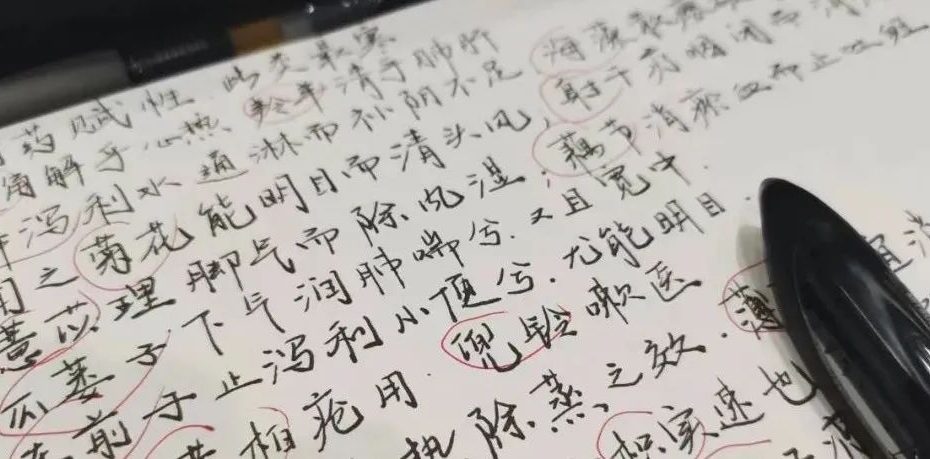 药赋性.此类最寒
角解于心热 羚羊清于肺肝
泻利水通淋而补阴不足 海藻散瘿
之菊花能明目而清头风,射干疗咽闭而消
薏苡理脚气而除风湿;藕节消瘀血而止吐衄
瓜蒌子下气润肺喘兮.又且宽中.
前子止泻利小便兮.尤能明目.
柏疮用.兜铃嗽医
热除蒸之效.薄 宜消
枳实速也